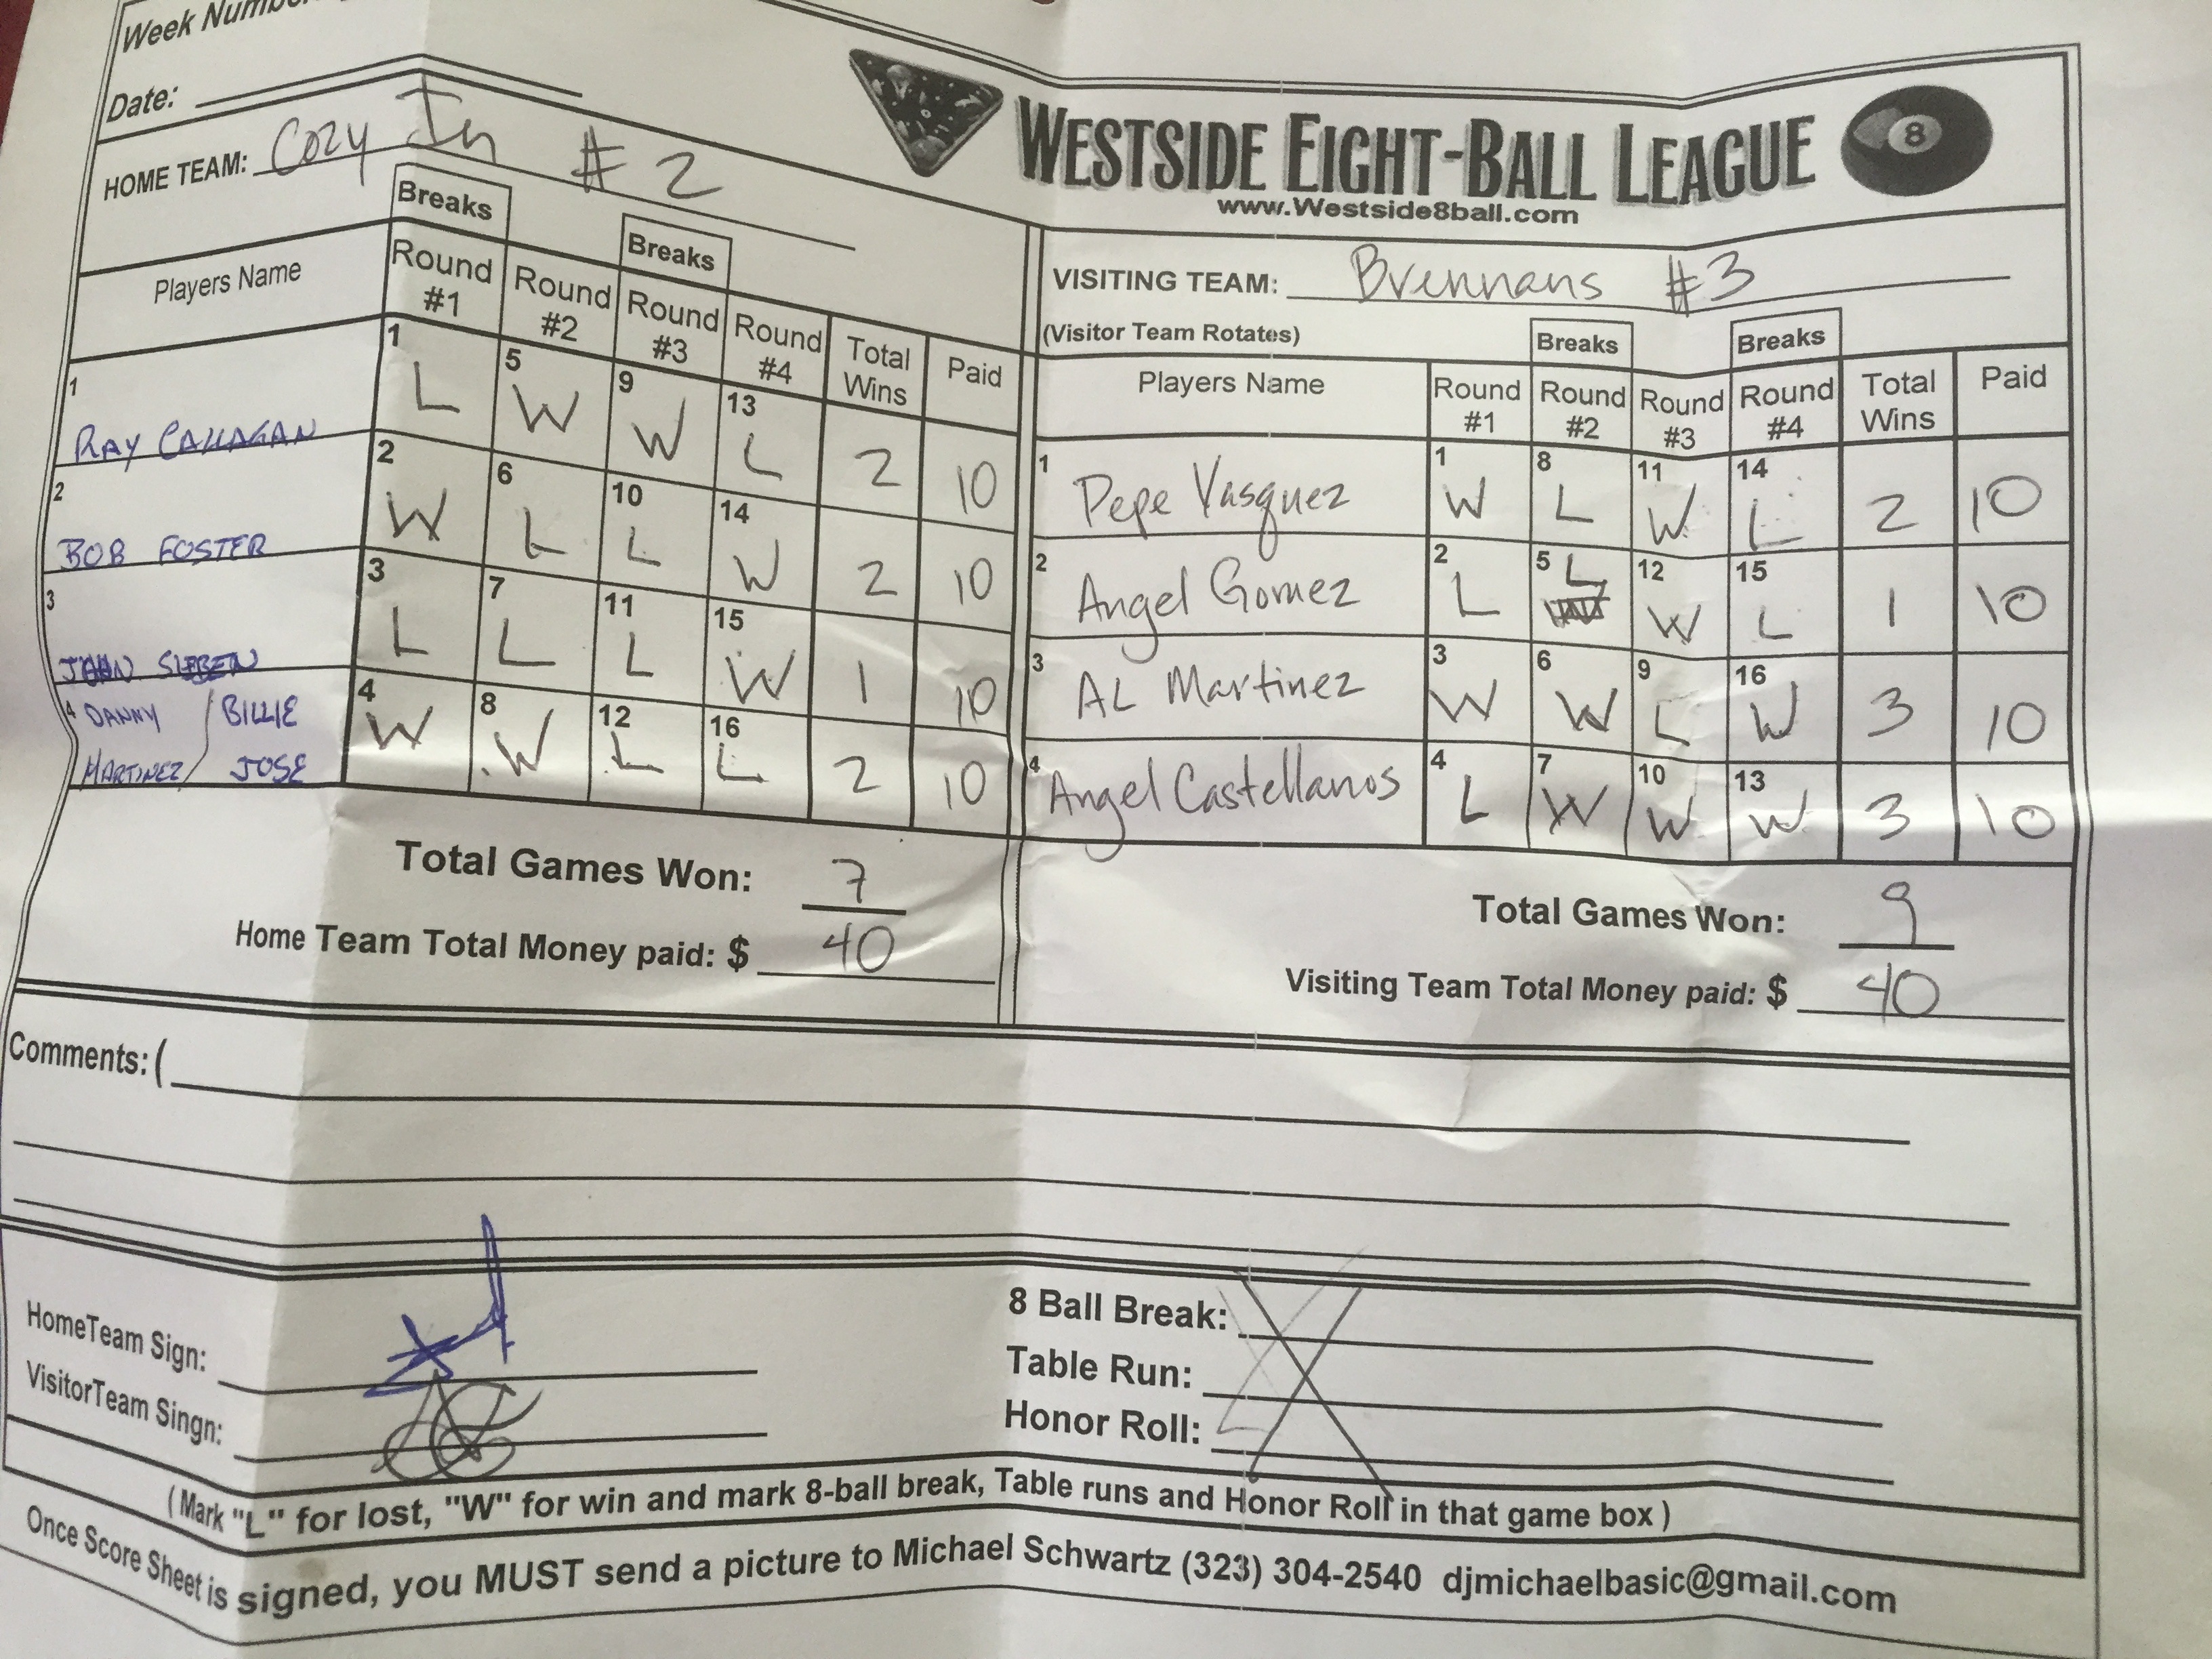 Week Number
Date:
HOME TEAM: Cozy In #2
WESTSIDE EIGHT-BALL LEAGUE
8
www.Westside8ball.com
Breaks Breaks
Players Name Round #1 Round #2 Round #3 Round #4 Total Wins Paid
1 RAY CALLAGAN 1 L 5 W 9 W 13 L 2 10
2 BOB FOSTER 2 W 6 L 10 L 14 W 2 10
3 3 L 7 L 11 L 15 W 1 10
4 DANNY MARTINEZ / BILLIE JOSE 4 W 8 W 12 L 16 L 2 10
Total Games Won: 7
Home Team Total Money paid: $ 40
VISITING TEAM: Brennans #3
(Visitor Team Rotates) Breaks Breaks
Players Name Round #1 Round #2 Round #3 Round #4 Total Wins Paid
1 Pepe Vasquez 1 W 8 L 11 W 14 L 2 10
2 Angel Gomez 2 L 5 L 12 W 15 L 1 10
3 AL Martinez 3 W 6 W 9 L 16 W 3 10
4 Angel Castellanos 4 L 7 W 10 W 13 W 3 10
Total Games Won: 9
Visiting Team Total Money paid: $ 40
Comments: (
HomeTeam Sign:
VisitorTeam Singn:
8 Ball Break:
Table Run:
Honor Roll:
( Mark "L" for lost, "W" for win and mark 8-ball break, Table runs and Honor Roll in that game box )
Once Score Sheet is signed, you MUST send a picture to Michael Schwartz (323) 304-2540 djmichaelbasic@gmail.com